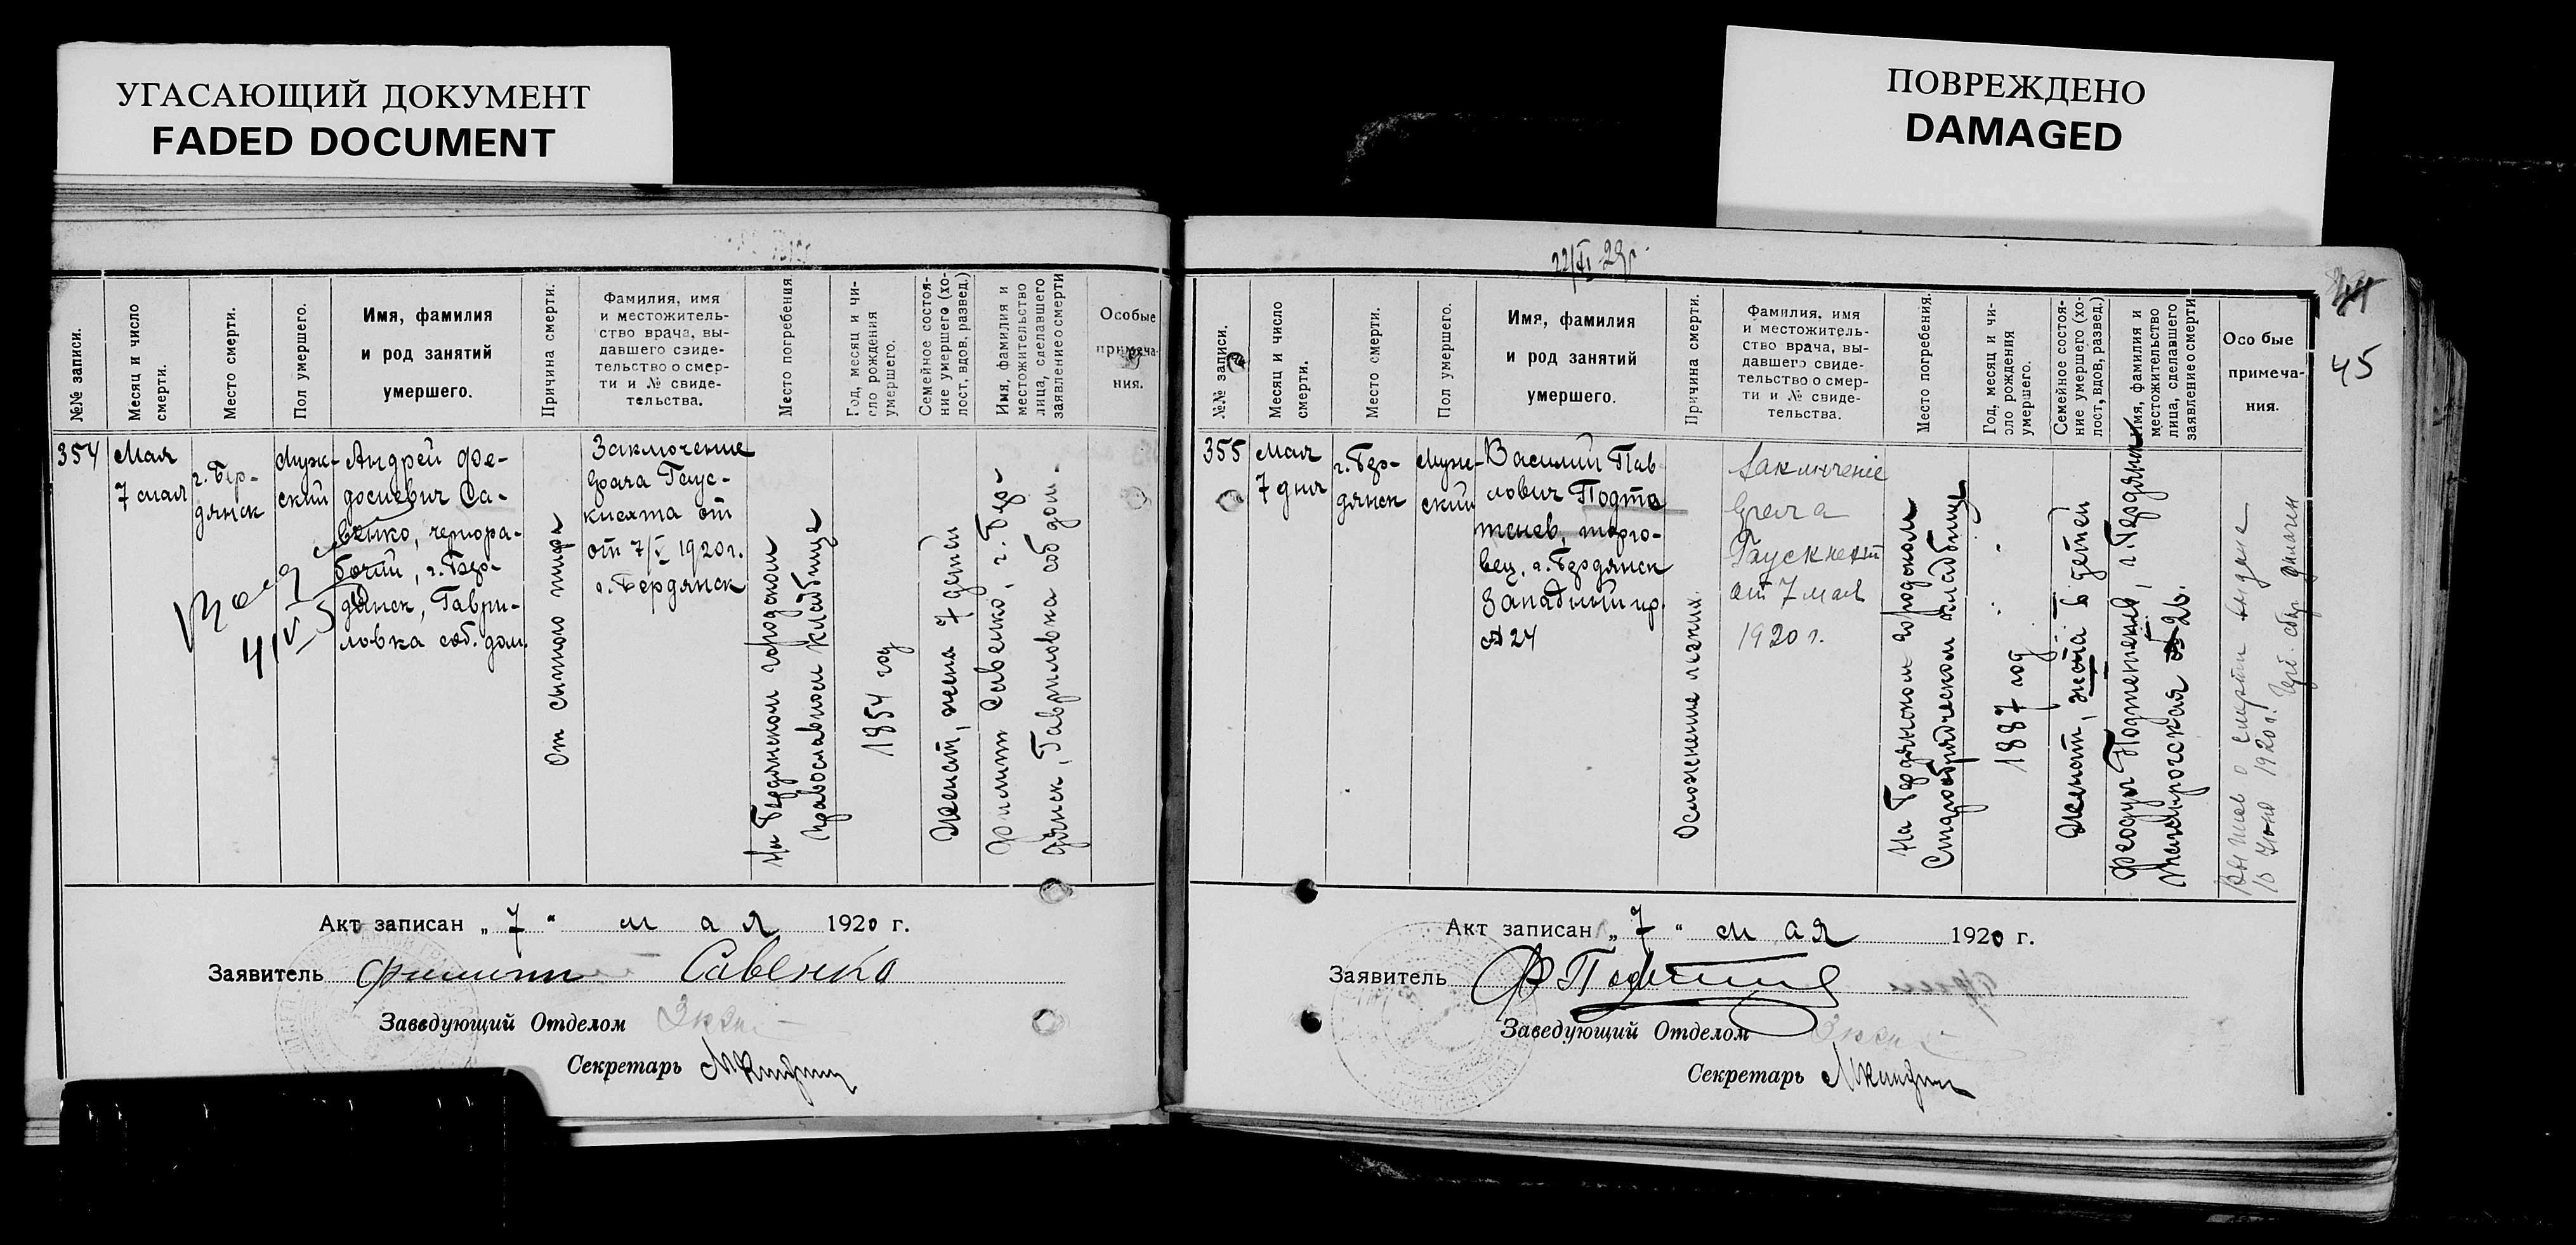 УГАСАЮЩИЙ ДОКУМЕНТ
FADED DOCUMENT
ПОВРЕЖДЕНО
DAMAGED
№№ записи.
Месяц и число
смерти.
Место смерти.
Пол умершего.
Имя, фамилия
и род занятий
умершего.
Причина смерти.
Фамилия, имя
и местожитель-
ство врача, вы-
давшего свиде-
тельство о смер-
ти и № свиде-
тельства.
Место погребения
Год, месяц и чи-
сло рождения
умершего.
Семейное состоя-
ние умершего (хо-
лост, вдов, развед.)
Имя, фамилия и
местожительство
лица, сделавшего
заявление о смерти
Особые
примеча-
ния.
354
Мая
7 мая
г. Бер-
дянск
Муж-
ский
Андрей Фе-
досиевич Са-
венко, черора-
бочий, г. Бер-
дянск, Гаври-
ловка соб. дом.
От сыпного тифа
Заключение
врача Гаус-
кнехта от
от 7/V 1920г.
г. Бердянск
На Бердянском городском
православном кладбище
1854 год
Женат, жена 7 детей
Филипп Савенко, г. Бер-
дянск, Гавриловка соб дом.
Акт записан „ 7 “ мая 1920 г.
Заявитель Филипп Савенко
Заведующий Отделом
Секретарь
22/XI 29р.
45
№№ записи.
Месяц и число
смерти.
Место смерти.
Пол умершего.
Имя, фамилия
и род занятий
умершего.
Причина смерти.
Фамилия, имя
и местожитель-
ство врача, вы-
давшего свиде-
тельство о смер-
ти и № свиде-
тельства.
Место погребения.
Год, месяц и чи-
сло рождения
умершего.
Семейное состоя-
ние умершего (хо-
лост, вдов, развед.)
Имя, фамилия и
местожительство
лица, сделавшего
заявление о смерти
Особые
примеча-
ния.
355
Мая
7 дня
г. Бер-
дянск
Муж-
ский
Василий Пав
лович Подпо
тенев, торго-
вец, г. Бердянск
Западный пр.
№ 24
Осложнение легких.
Заключение
врача
Гаускнехт
от 7 мая
1920 г.
На Бердянском городском
Старообрядческом кладбище
1887 год
Женат, жена 6 детей
Феодул г. Бердянск
26.
о смерти выдана
10 июня 1920 г.
Акт записан „ 7 “ мая 1920 г.
Заявитель
Заведующий Отделом
Секретарь